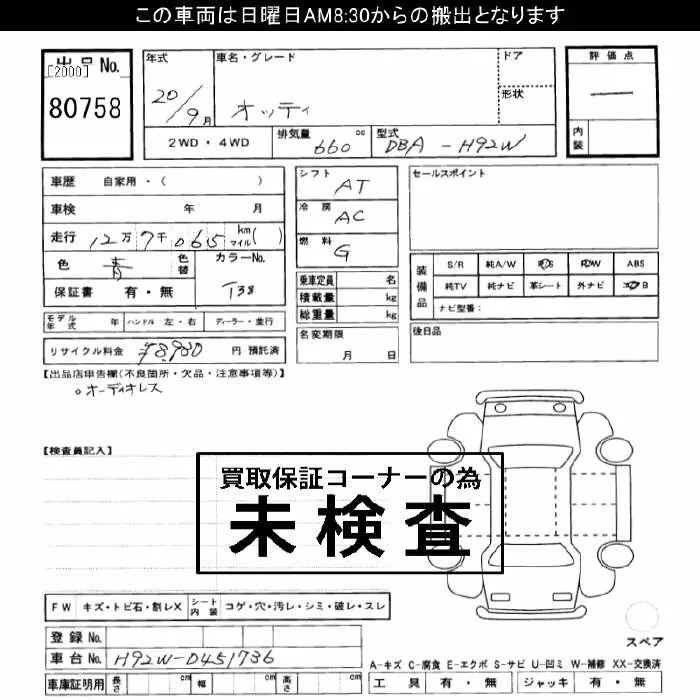 この車両は日曜日AM8:30からの搬出となります
出品 No.
[2000]
80758
年式 車名・グレード ドア
20/9月 オッティ 形状
2WD・4WD 排気量 660 cc 型式 DBA-H92W
評価点
—
内装
車歴 自家用・( )
車検 年 月
走行 12万7千065 km マイル( )
色 青 色替 カラーNo.
保証書 有・無 T38
モデル年式 年 ハンドル 左・右 ディーラー・並行
リサイクル料金 ¥8,980 円 預託済
シフト AT
冷房 AC
燃料 G
乗車定員 名
積載量 kg
総重量 kg
名変期限
月 日
セールスポイント
装備品
S/R 純A/W P/S P/W ABS
純TV 純ナビ 革シート 外ナビ エアB
ナビ型番:
後日品
【出品店申告欄(不良箇所・欠品・注意事項等)】
○オーディオレス
【検査員記入】
買取保証コーナーの為
未検査
FW キズ・トビ石・割レX シート内装 コゲ・穴・汚レ・シミ・破レ・スレ
登録 No.
車台 No. H92W-D451736
車庫証明用 長さ cm 幅 cm 高さ cm
スペア
A-キズ C-腐食 E-エクボ S-サビ U-凹ミ W-補修 XX-交換済
工具 有・無 ジャッキ 有・無